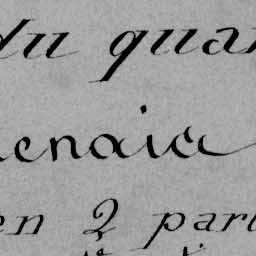 du quar
enaia
en 2 part